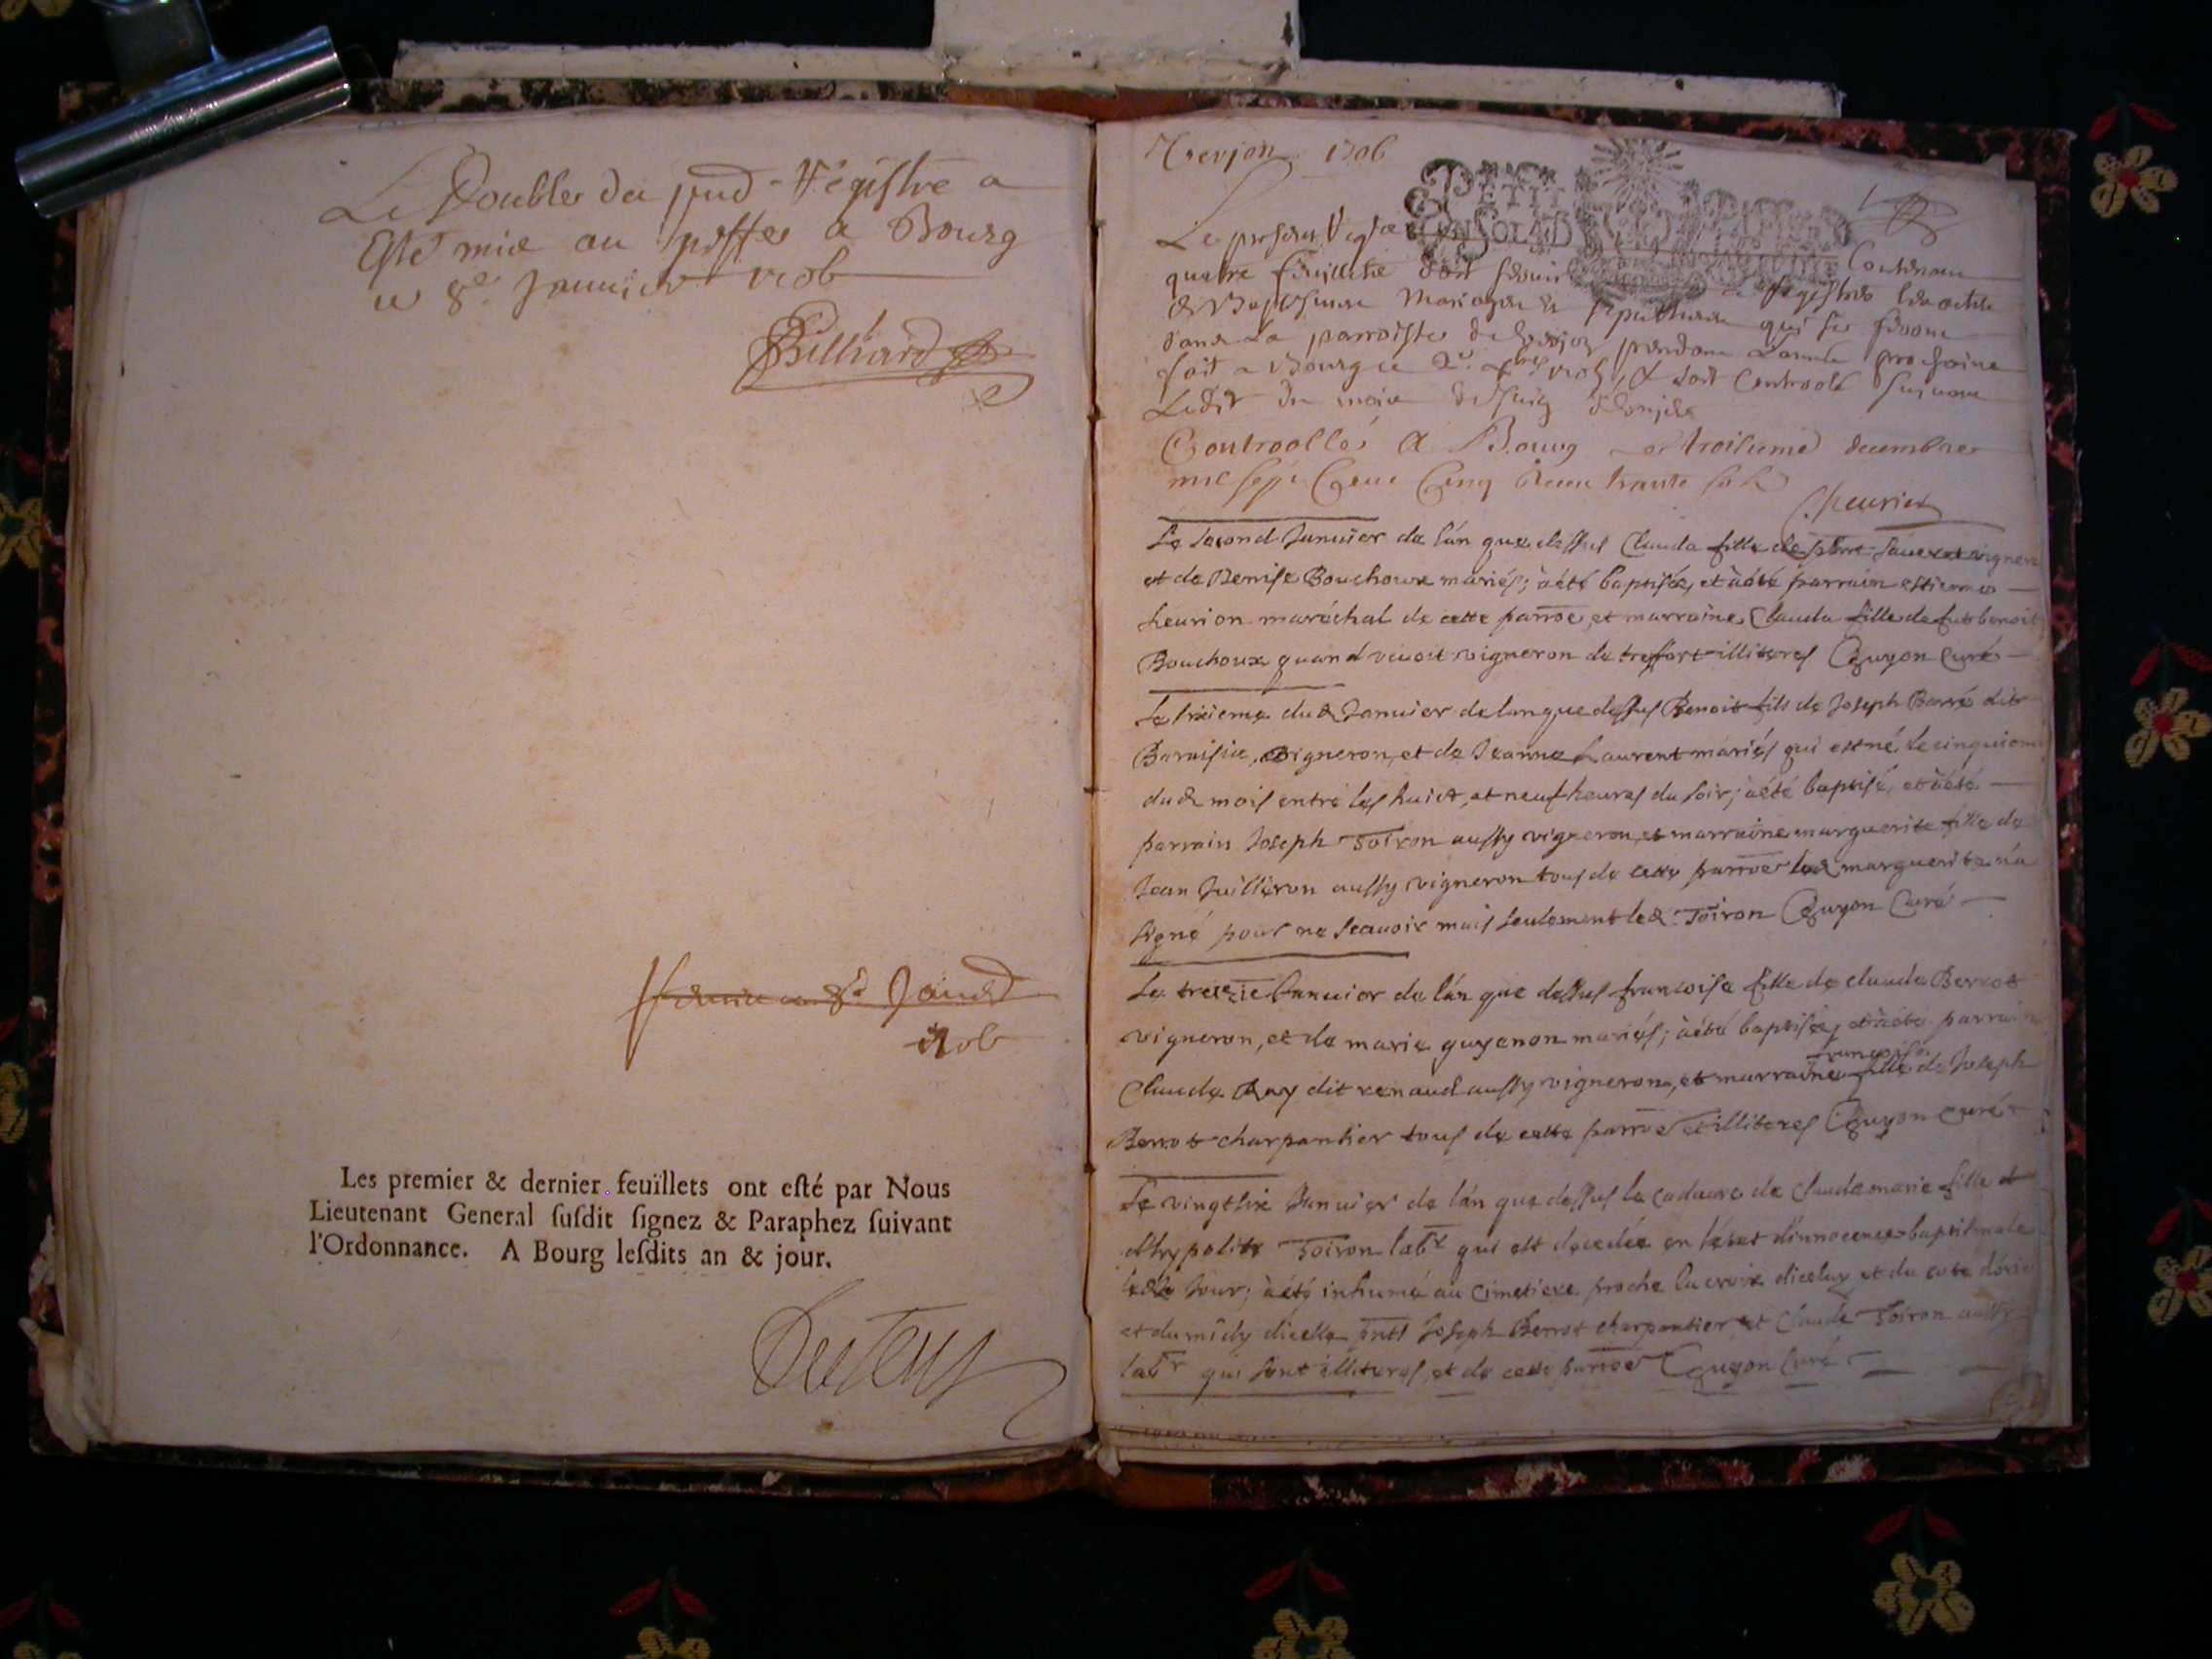 Le Double du pnd Régistre a
Esté mis au greffe a Bourg
ce 8e. Januier 1706
Billiard
Januier
1706
Les premier & dernier feuïllets ont esté par Nous
Lieutenant General susdit signez & Paraphez suivant
l'Ordonnance. A Bourg lesdits an & jour.
Treujon 1706
PETIT PAPIER
Le present Regre Contenant
quatre feuillets doit seruir de Registre des actes
de Baptesmes Mariages et sepultures qui se feront
dans La parroisse de pendant Lannée prochaine
fait a Bourg ce 2e. xbre 1705, & soit Controolé suiuant
Ledit du mois de
Controollé A Bourg ce troisieme decembre
mil sept Cent Cinq Receu trante sols
Cheurier
Le second Januier de lán que dessus Clauda fille de vigneron
et de Denise Bouchoux mariés; à été baptisée, et à été parrain estienne
heurion maréchal de cette parroe, et marraine Clauda fille de fut benoit
Bouchoux quand viuoit vigneron de treffort illiteres Guyon Curé
Le sixieme dud Januier de lan que dessus Benoit fils de Joseph Barré dit
Baraisia, vigneron, et de Jeanne Laurent mariés qui est né le cinquiem
dud mois entre les huict, et neuf heures du soir; à été baptisé, et à été
parrain Joseph Toiron aussy vigneron, et marraine marguerite fille de
Jean Juilleron aussy vigneron tous de cette parroe lad marguerite n'a
signé pour ne scauoir mais seulement led Toiron Guyon Curé
Le trezie Januier de lán que dessus francoise fille de claude Berrot
vigneron, et de marie guyenon mariés; à été baptisée, et à été parrain
Claude Ray dit renaud aussy vigneron, et marraine francoise fille de Joseph
Berrot charpantier tous de cette parroe et illiteres Guyon Curé
Le vingtsix Januier de lán que dessus le cadavre de claudemarie fille
d'hypolite Toiron labr qui est decedée en l'état dinnocence baptismale
led jour; à été inhumé au cimetiere proche la croix diceluy et du coté
et du midy dicelle pnts Joseph Berrot charpantier et Claude Toiron aussy
labr qui sont illiteres, et de cette parroe Guyon Curé